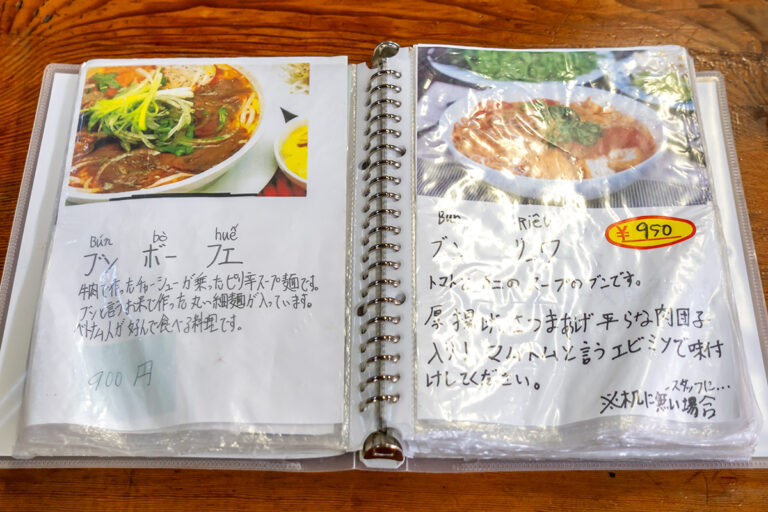 Bún bò huế
ブン ボー フェ
牛肉で作ったチャーシューが乗ったピリ辛スープ麺です。
ブンと言うお米で作った丸い細麺が入っています。
ベトナム人が好んで食べる料理です。
900 円
Bún Riêu
ブン リュウ
¥950
トマトとカニのスープのブンです。
厚揚げ、さつまあげ 平らな肉団子
入り! マムトムと言うエビミソで味付
けしてください。
スタッフに...
※机に無い場合